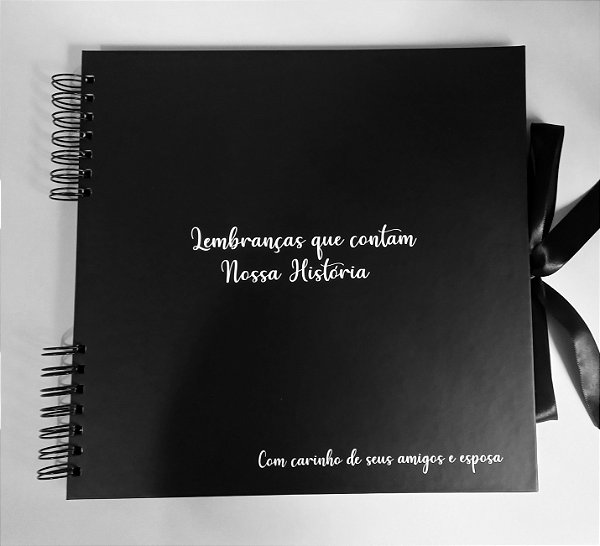 Lembranças que contam
Nossa História
Com carinho de seus amigos e esposa